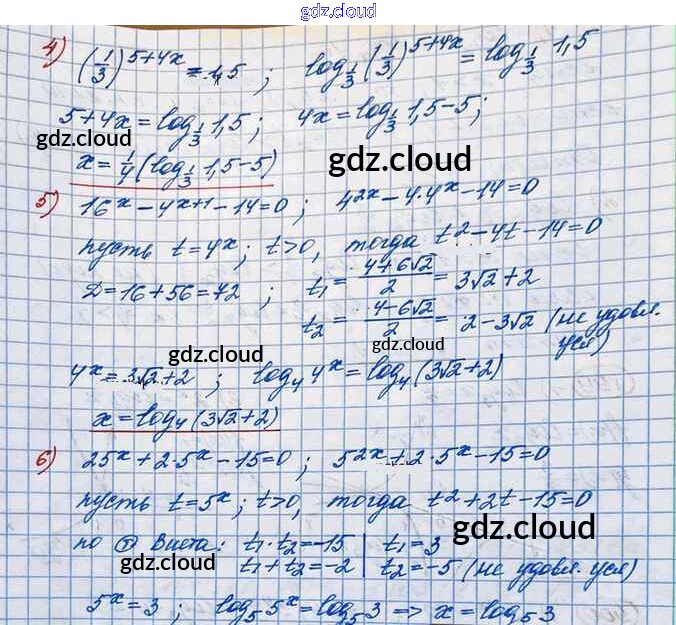 gdz.cloud
4) (1/3)^{5+4x} = 1,5 ; log_{1/3} (1/3)^{5+4x} = log_{1/3} 1,5
5+4x = log_{1/3} 1,5 ; 4x = log_{1/3} 1,5-5 ;
gdz.cloud
gdz.cloud
x = 1/4 (log_{1/3} 1,5-5)
5) 16^x - 4^{x+1} - 14=0 ; 4^{2x} - 4·4^x - 14=0
пусть t=4^x ; t>0, тогда t^2-4t-14=0
Д=16+56=72 ; t_1 = (4+6√2)/2 = 3√2+2
t_2 = (4-6√2)/2 = 2-3√2 (не удовл. усл)
gdz.cloud
gdz.cloud
4^x = 3√2+2 ; log_4 4^x = log_4 (3√2+2)
x = log_4 (3√2+2)
6) 25^x + 2·5^x - 15=0 ; 5^{2x} + 2·5^x - 15=0
пусть t=5^x ; t>0, тогда t^2+2t-15=0
gdz.cloud
по Т Виета: t_1·t_2=-15 | t_1=3
gdz.cloud
t_1+t_2=-2 | t_2=-5 (не удовл. усл)
5^x=3 ; log_5 5^x = log_5 3 => x = log_5 3
gdz.cloud